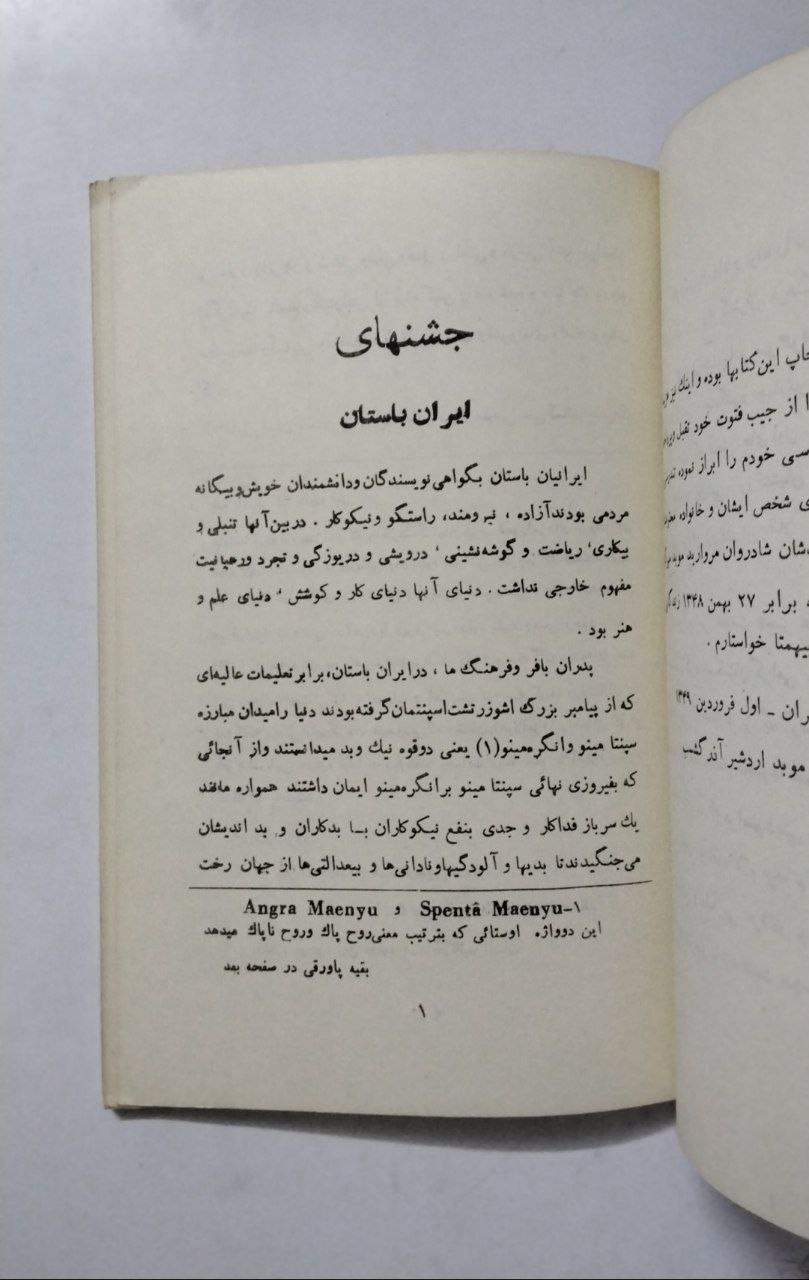 جشنهای
ایران باستان
ایرانیان باستان بگواهی نویسندگان ودانشمندان خویش وبیگانه
مردمی بودند آزاده ، نیرومند، راستگو ونیکوکار . دربین آنها تنبلی و
بیکاری، ریاضت و گوشه نشینی، درویشی و دریوزگی و تجرد ورهبانیت
مفهوم خارجی نداشت . دنیای آنها دنیای کار و کوشش ، دنیای علم و
هنر بود .
پدران بافر وفرهنگ ما ، درایران باستان، برابر تعلیمات عالیه‌ای
که از پیامبر بزرگ اشوزرتشت اسپنتمان گرفته بودند دنیا رامیدان مبارزه
سپنتا مینو وانگره‌مینو(۱) یعنی دوقوه نیك وبد میدانستند واز آنجائی
که بفیروزی نهائی سپنتا مینو برانگره‌مینو ایمان داشتند همواره مانند
یك سرباز فداکار و جدی بنفع نیکوکاران بـا بدکاران و بد اندیشان
می‌جنگیدند تا بدیها و آلودگیهاونادانی‌ها و بیعدالتی‌ها از جهان رخت
۱-Spentâ Maenyu و Angra Maenyu
این دوواژه اوستائی که بترتیب معنی روح پاك وروح ناپاك میدهد
بقیه پاورقی در صفحه بعد
۱
چاپ این کتابها بوده و اینك نیز
از جیب فتوت خود تقبل
خودم را ابراز نموده
شخص ایشان و خانواده
شادروان مروارید
برابر ۲۷ بهمن ۱۳۴۸
خواستارم .
اول فروردین ۱۳۴۹
موبد اردشیر آذرگشسب